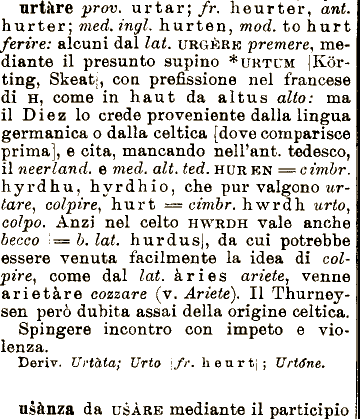 urtàre prov. urtar; fr. heurter, ant.
hurter; med. ingl. hurten, mod. to hurt
ferire: alcuni dal lat. URGÈRE premere, me-
diante il presunto supino *URTUM [Kör-
ting, Skeat], con prefissione nel francese
di H, come in haut da altus alto: ma
il Diez lo crede proveniente dalla lingua
germanica o dalla celtica [dove comparisce
prima], e cita, mancando nell'ant. tedesco,
il neerland. e med. alt. ted. HUREN = cimbr.
hyrdhu, hyrdhio, che pur valgono ur-
tare, colpire, hurt = cimbr. hwrdh urto,
colpo. Anzi nel celto HWRDH vale anche
becco [= b. lat. hurdus], da cui potrebbe
essere venuta facilmente la idea di col-
pire, come dal lat. àries ariete, venne
arietàre cozzare (v. Ariete). Il Thurney-
sen però dubita assai della origine celtica.
Spingere incontro con impeto e vio-
lenza.
Deriv. Urtàta; Urto [fr. heurt]; Urtóne.
uṡànza da UṠÀRE mediante il participio